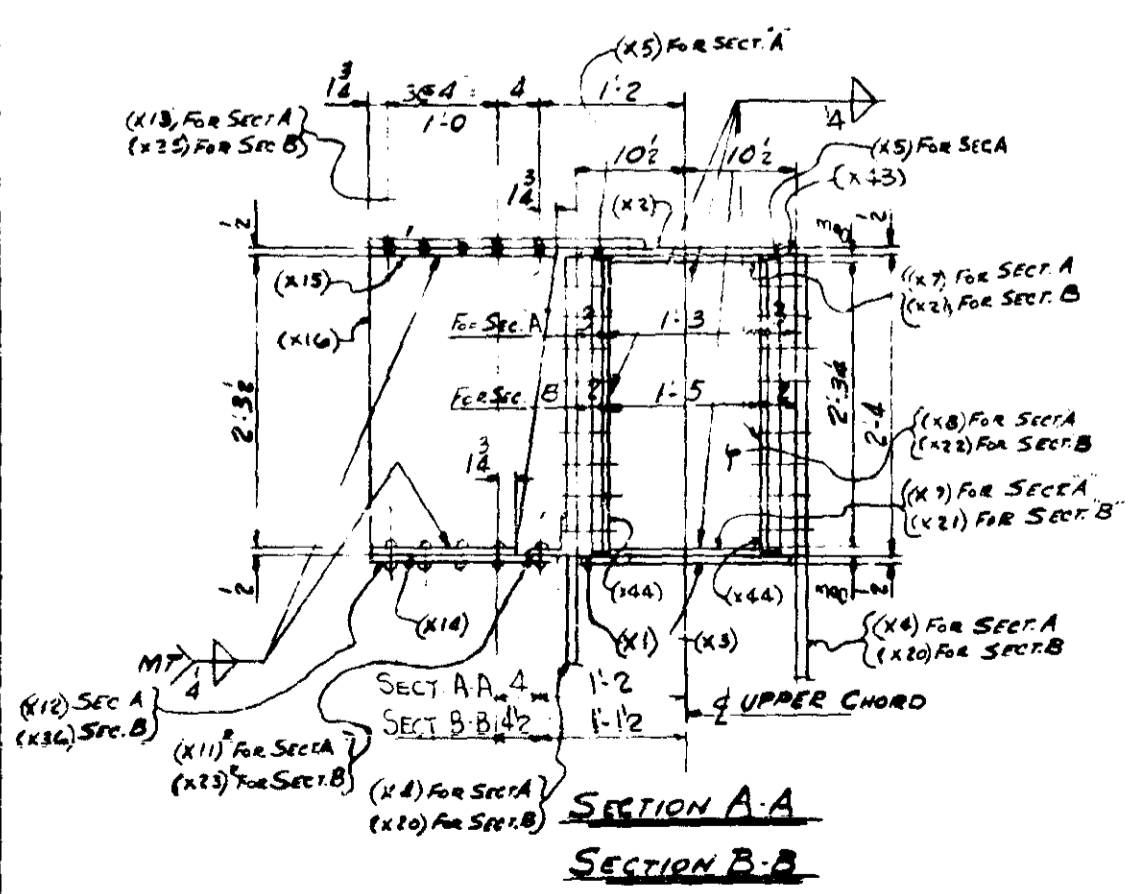 (X5) FOR SECT. "A"
1 3/4
3@4
4
1'-2
1'-0
4
(X13) FOR SECT A
(X25) FOR SEC B)
10 1/2
10 1/2
(X5) FOR SEC A
(X43)
1 3/4
(X2)
1/2
3/8
1/2
(X15)
(X7) FOR SECT. A
(X21) FOR SECT. B
FOR SEC. A
3
1'-3
3
(X16)
2'-3 1/2
FOR SEC. B
2
1'-5
2
2'-3 1/4
2'-4
(X8) FOR SECT A
(X22) FOR SECT. B
1 3/4
(X9) FOR SECT "A"
(X21) FOR SECT. "B"
1/2
3/8
1/2
(X44)
(X44)
(X14)
(X1)
(X3)
(X4) FOR SECT. A
(X20) FOR SECT. B
MT
1/4
(X12) SEC A
(X36) SEC. B)
SECT. A-A 4 1'-2
SECT B-B 4 1/2 1'-1 1/2
℄ UPPER CHORD
(X11)ᴿ FOR SECT A
(X23)ᴿ FOR SECT. B)
(X4) FOR SECT A
(X20) FOR SECT. B)
SECTION A-A
SECTION B-B